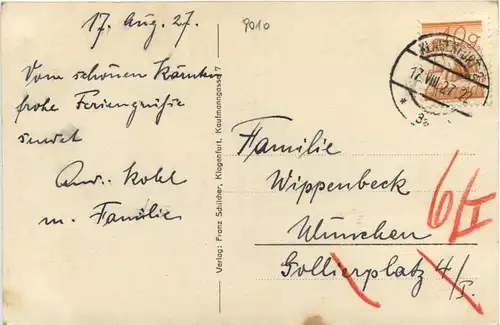 17. Aug. 27.
9010
Vom schönen Kärnten
frohe Feriengrüße
sendet
And. Kohl
m. Familie
Verlag: Franz Schilcher, Klagenfurt, Kaufmanngasse 7
KLAGENFURT
17.VIII.27
Familie
Wippenbeck
München
Gollierplatz 4/I.
6/I